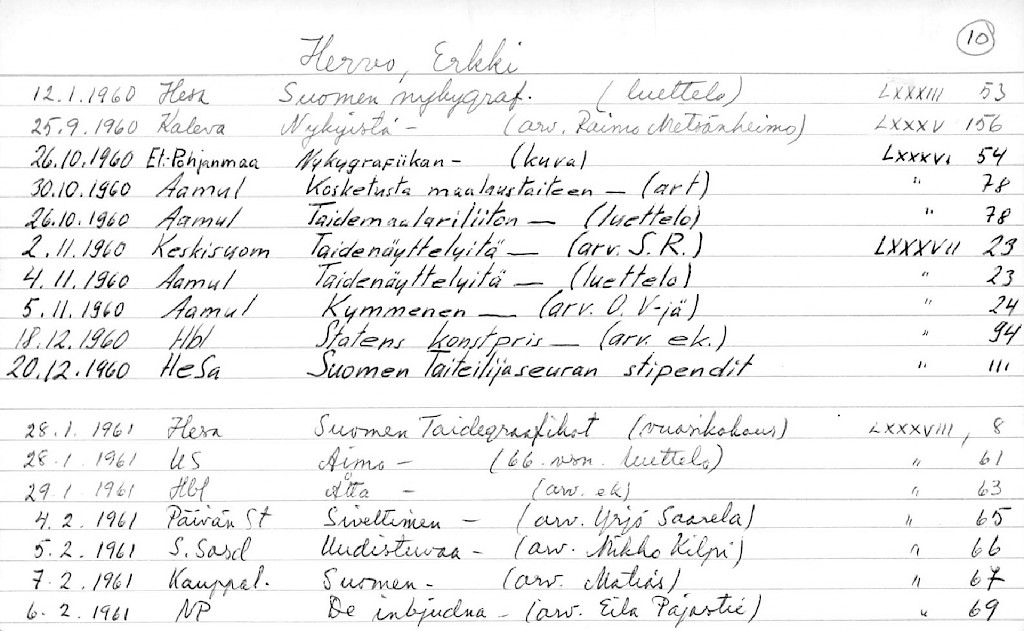 10
Hervo, Erkki
12.1.1960 Hesa Suomen nykygraf. (luettelo) LXXXIII 53
25.9.1960 Kaleva Nykyistä - (arv. Raimo Metsänheimo) LXXXV 156
26.10.1960 Et:Pohjanmaa Nykygrafiikan - (kuva) LXXXVI 54
30.10.1960 Aamul Kosketusta maalaustaiteen - (art) " 78
26.10.1960 Aamul Taidemaalariliiton - (luettelo) " 78
2.11.1960 Keskisuom Taidenäyttelyitä - (arv. S.R.) LXXXVII 23
4.11.1960 Aamul Taidenäyttelyitä - (luettelo) " 23
5.11.1960 Aamul Kymmenen - (arv. O. V-jä) " 24
18.12.1960 Hbl Statens konstpris - (arv. ek.) " 94
20.12.1960 HeSa Suomen Taiteilijaseuran stipendit " 111
28.1.1961 Hesa Suomen Taidegraafikot (vuosikokous) LXXXVIII, 8
28.1.1961 US Aimo - (66. vsn. luettelo) " 61
29.1.1961 Hbl Åtta - (arv. ek) " 63
4.2.1961 Päivän St Siveltimen - (arv. Yrjö Saarela) " 65
5.2.1961 S. Sosd Uudistuvaa - (arv. Mikko Kilpi) " 66
7.2.1961 Kauppal. Suomen - (arv. Matias) " 67
6.2.1961 NP De inbjudna - (arv. Eila Pajastie) " 69